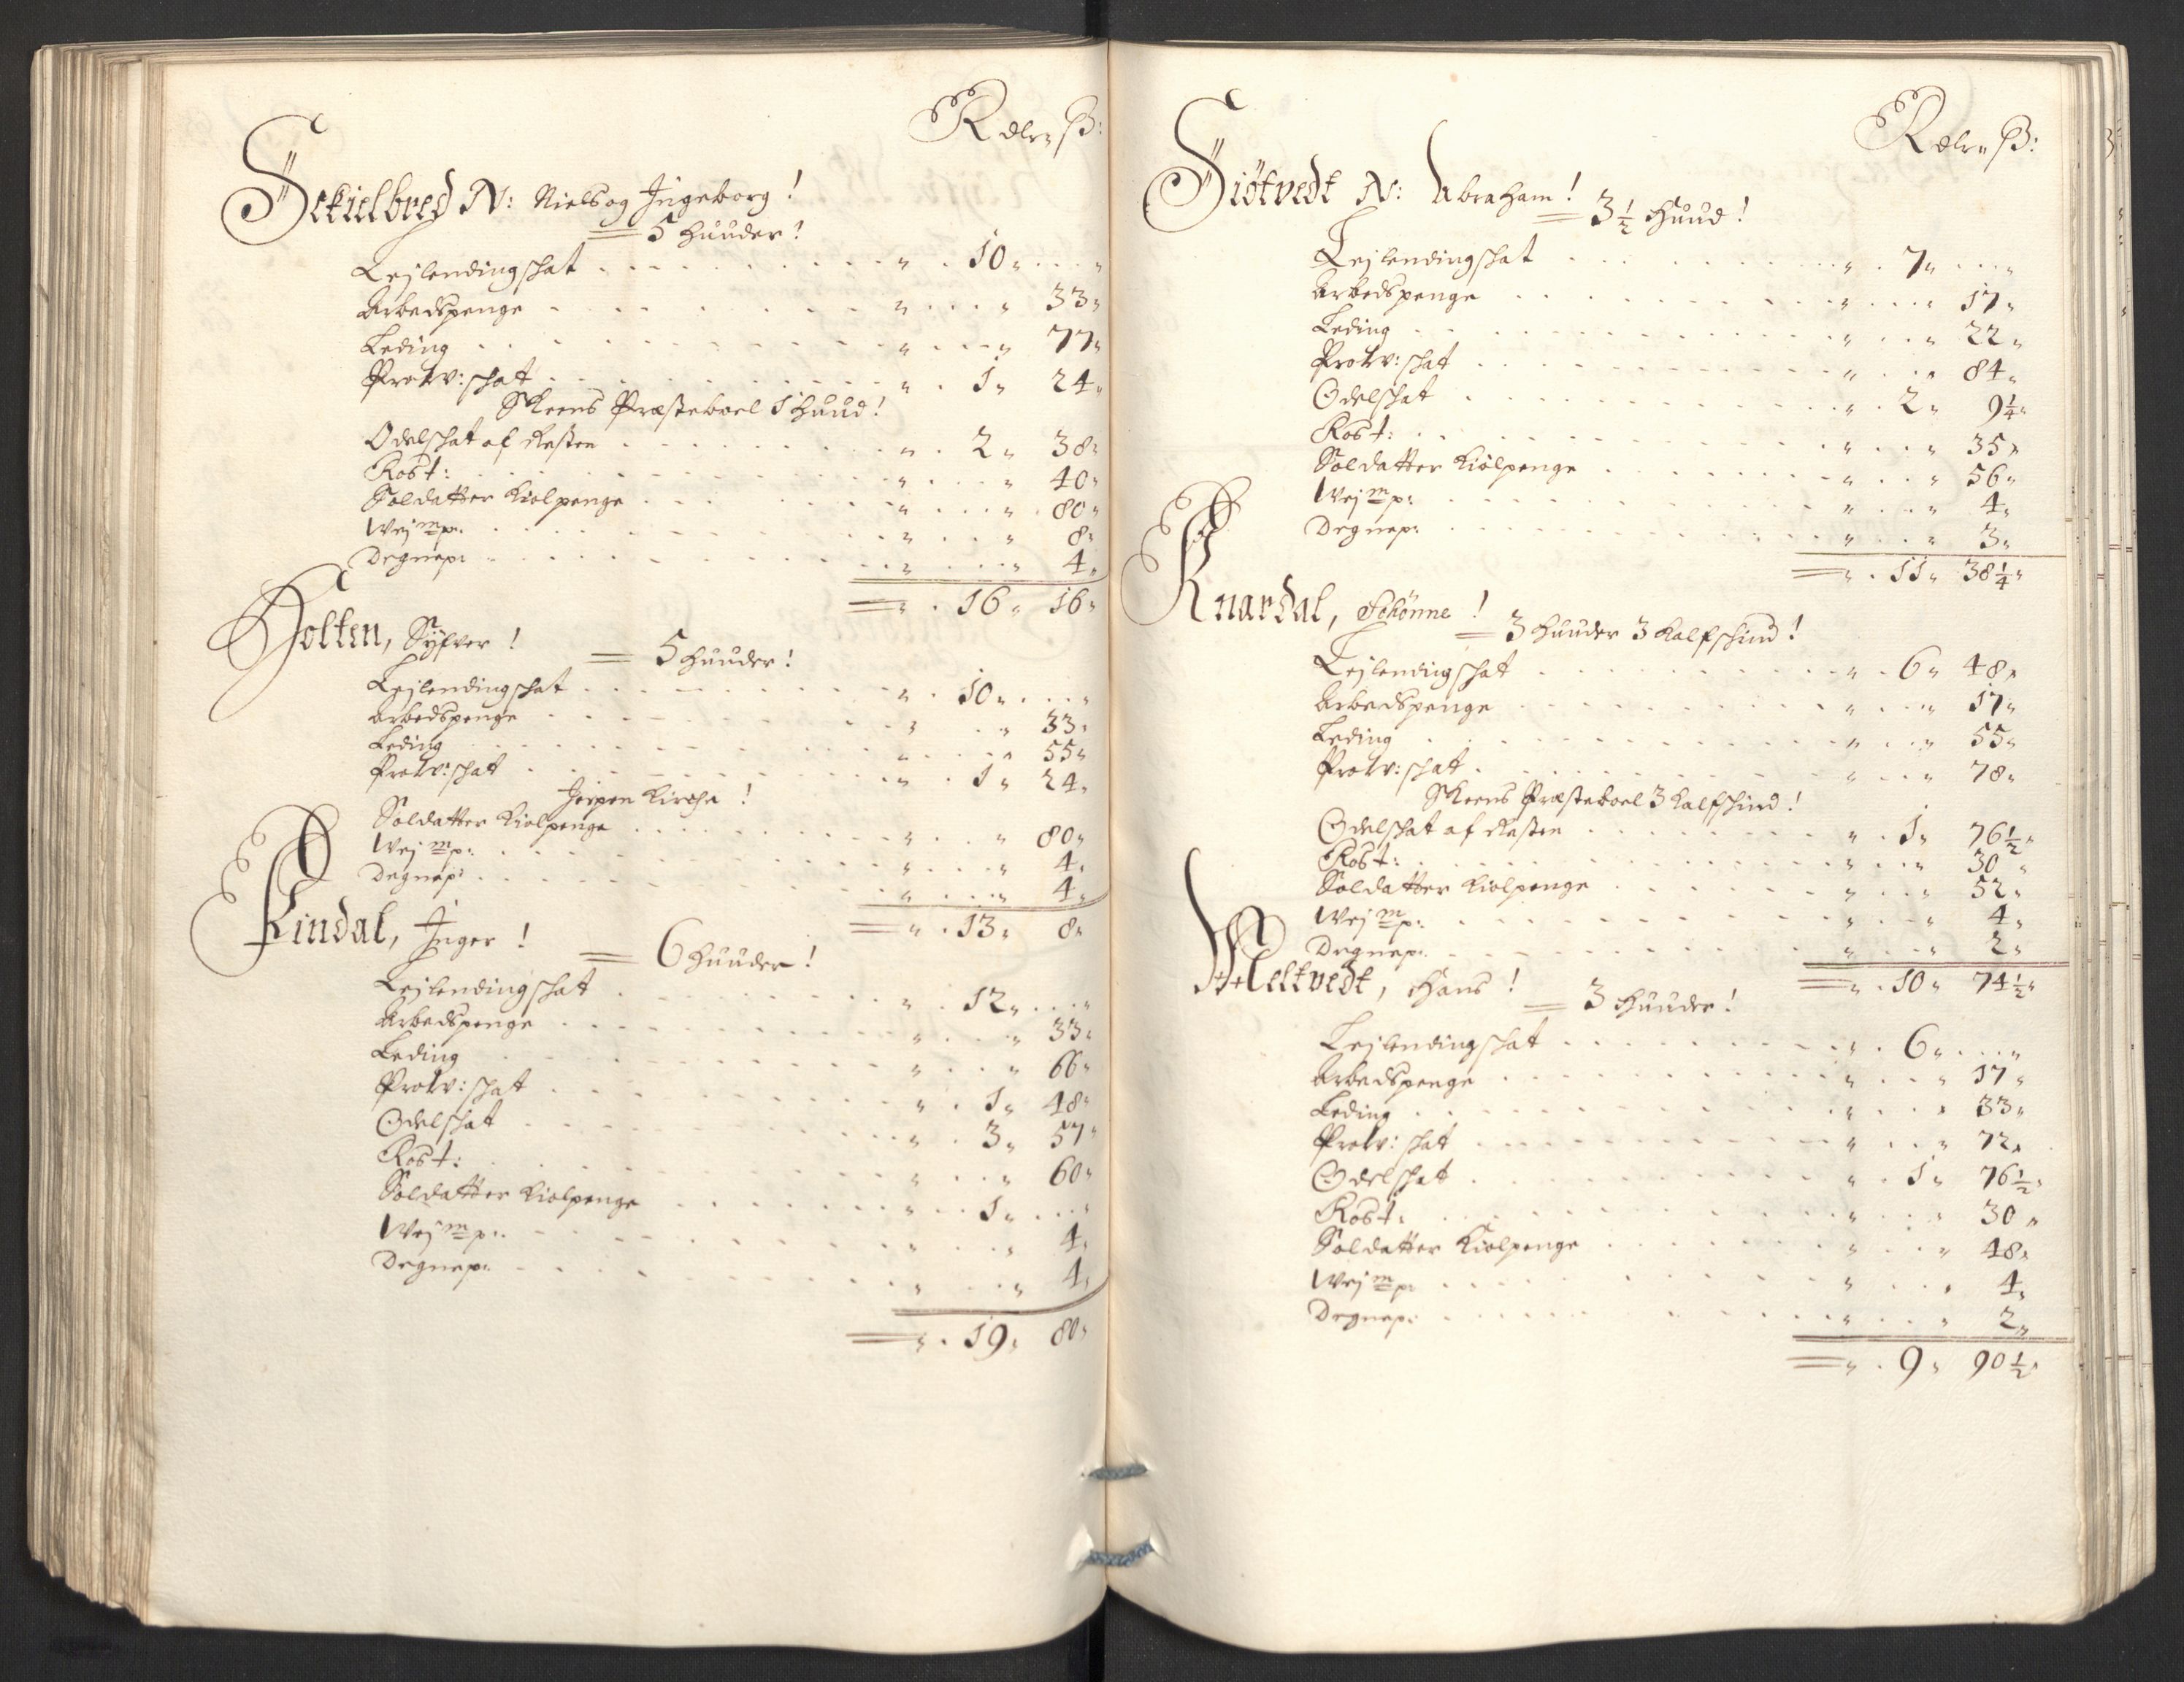 Rdlr„ ß:
Sekielbred N: Niels og Ingeborg!
5 huuder!
Lejlendingschat „ 10„ „
Arbedspenge „ „ 33„
Leding „ „ 77„
Prov:schat „ 1„ 24„
Skeens Præsteboel 1 huud!
Odelschat af Resten „ 2„ 38„
Rost: „ „ 40„
Soldatter Kiolpenge „ „ 80„
Wejmp: „ „ 8„
Degnep: „ „ 4„
„ 16„ 16„
Holten, Syfver!
5 huuder!
Lejlendingschat „ 10„ „
Arbedspenge „ „ 33„
Leding „ „ 55„
Prov:schat „ 1„ 24„
Jerpen Kirche!
Soldatter Kiolpenge „ „ 80„
Wejmp: „ „ 4„
Degnep: „ „ 4„
„ 13„ 8„
Rindal, Inger!
6 huuder!
Lejlendingschat „ 12„ „
Arbedspenge „ „ 33„
Leding „ „ 66„
Prov:schat „ 1„ 48„
Odelschat „ 3„ 57„
Rost: „ „ 60„
Soldatter Kiolpenge „ 1„ „
Wejmp: „ „ 4„
Degnep: „ „ 4„
„ 19„ 80„
Rdlr„ ß:
Siötvedt N: Abraham!
3 1/2 Huud!
Lejlendingschat „ 7„ „
Arbedspenge „ „ 17„
Leding „ „ 22„
Prov:schat „ „ 84„
Odelschat „ 2„ 9 1/4„
Rost: „ „ 35„
Soldatter Kiolpenge „ „ 56„
Wejmp: „ „ 4„
Degnep: „ „ 3„
„ 11„ 38 1/4„
Knardal,
3 huuder 3 Kalfschind!
Lejlendingschat „ 6„ 48„
Arbedspenge „ „ 17„
Leding „ „ 55„
Prov:schat „ „ 78„
Skeens Præsteboel 3 Kalfschind!
Odelschat af Resten „ 1„ 76 1/2„
Rost: „ „ 30„
Soldatter Kiolpenge „ „ 52„
Wejmp: „ „ 4„
Degnep: „ „ 2„
„ 10„ 74 1/2„
Meltvedt, Hans!
3 huuder!
Lejlendingschat „ 6„ „
Arbedspenge „ „ 17„
Leding „ „ 33„
Prov:schat „ „ 72„
Odelschat „ 1„ 76 1/2„
Rost: „ „ 30„
Soldatter Kiolpenge „ „ 48„
Wejmp: „ „ 4„
Degnep: „ „ 2„
„ 9„ 90 1/2„